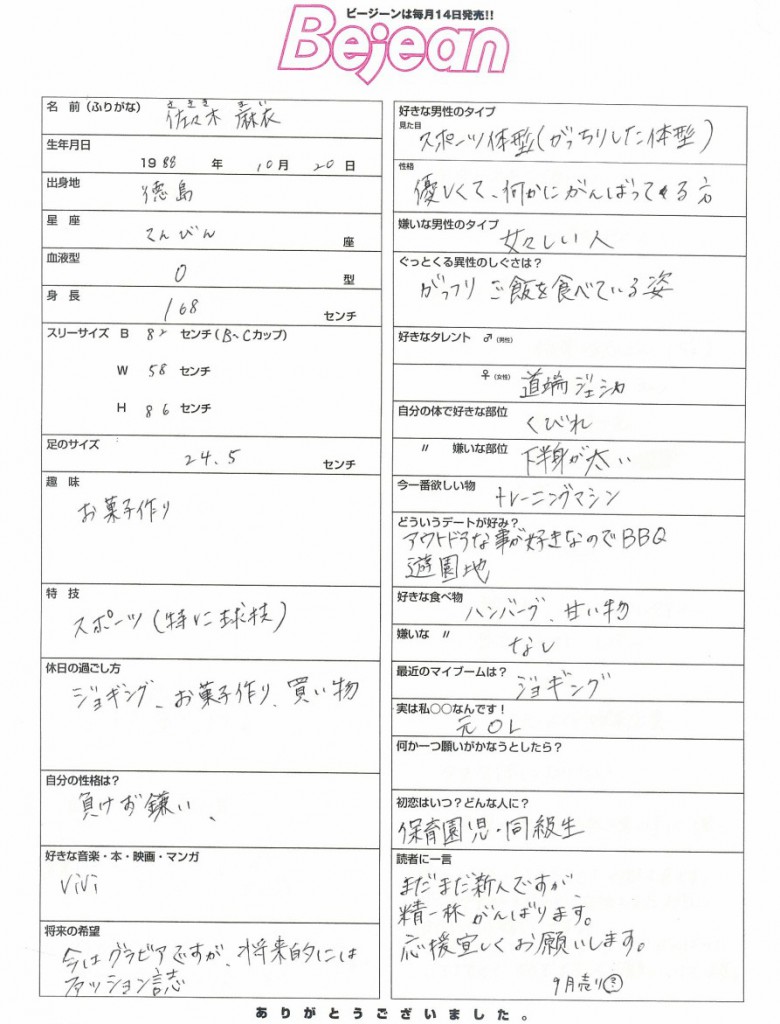 ビージーンは毎月14日発売!!
Bejean
名 前(ふりがな) ささき まい
佐々木 麻衣
生年月日
1988 年 10月 20日
出身地
徳島
星 座
てんびん 座
血液型
O 型
身 長
168 センチ
スリーサイズ B 82 センチ(B~Cカップ)
W 58 センチ
H 86 センチ
足のサイズ
24.5 センチ
趣 味
お菓子作り
特 技
スポーツ(特に球技)
休日の過ごし方
ジョギング、お菓子作り、買い物
自分の性格は?
負けず嫌い、
好きな音楽・本・映画・マンガ
ViVi
将来の希望
今はグラビアですが、将来的には
ファッション誌
好きな男性のタイプ
見た目
スポーツ体型(がっちりした体型)
性格
優しくて、何かにがんばってる方
嫌いな男性のタイプ
女々しい人
ぐっとくる異性のしぐさは?
がっつり ご飯を食べている姿
好きなタレント ♂(男性)
♀(女性) 道端ジェシカ
自分の体で好きな部位
くびれ
〃 嫌いな部位
下半身が太い
今一番欲しい物
トレーニングマシン
どういうデートが好み?
アウトドアな事が好きなのでBBQ
遊園地
好きな食べ物
ハンバーグ、甘い物
嫌いな 〃
なし
最近のマイブームは?
ジョギング
実は私○○なんです!
元OL
何か一つ願いがかなうとしたら?
初恋はいつ?どんな人に?
保育園児・同級生
読者に一言
まだまだ新人ですが、
精一杯がんばります。
応援宜しくお願いします。
9月売り?
ありがとうございました。